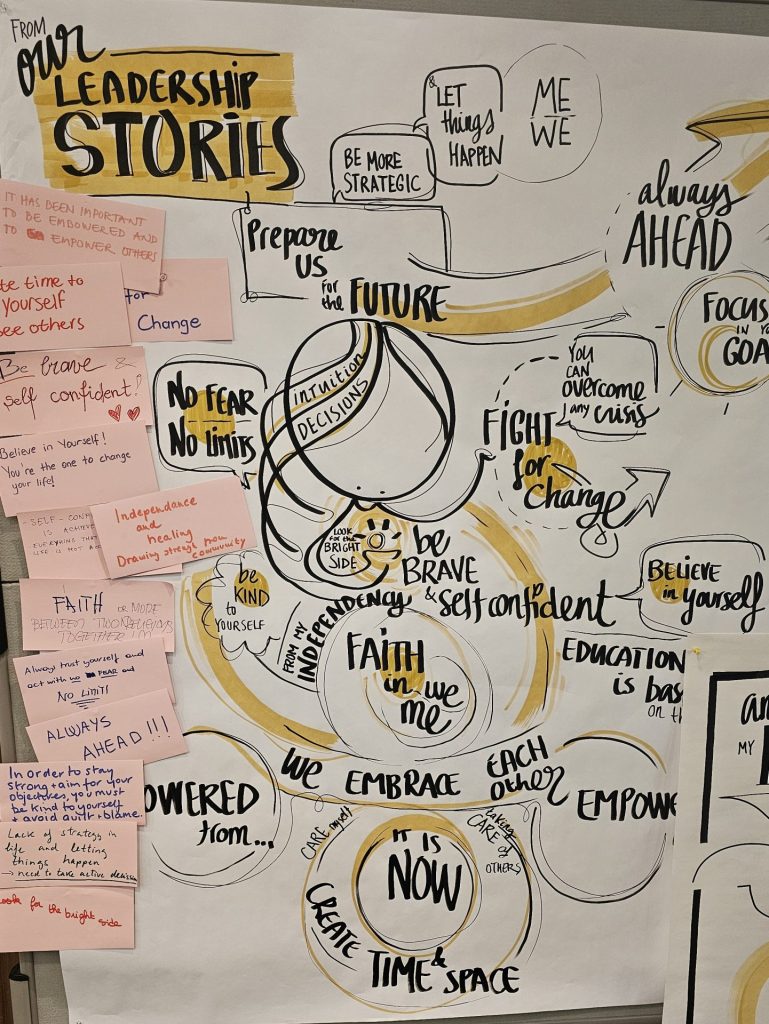 FROM
our
LEADERSHIP
STORIES
& LET
things
HAPPEN
ME
WE
BE MORE
STRATEGIC
always
AHEAD
Prepare
US
for the FUTURE
FOCUS
IN
GOA
YOU
CAN
overcome
any crisis
NO FEAR
NO LIMITS
INTUITION
DECISIONS
FIGHT
for
Change
LOOK
for the
BRIGHT
SIDE
be
BRAVE
& Self confident
BELIEVE
in yourself
be
KIND
to
YOURSELF
FROM MY
INDEPENDENCY
FAITH
in we
me
EDUCATION
is bas
on th
WE EMBRACE EACH other
OWERED
from...
EMPOWE
CARE myself
taking
CARE of
OTHERS
IT IS
NOW
CREATE TIME & SPACE
an
MY
IT HAS BEEN IMPORTANT
TO BE EMPOWERED AND
TO EMPOWER OTHERS
te time to
yourself
see others
for
Change
Be brave &
self confident!
Believe in Yourself!
You're the one to change
your life!
- SELF - CONF
IS ACHIEVE
EVERYTHING THA
LIFE IS NOT
Independance
and
healing
Drawing strength from
community
FAITH OR MODE
BETWEEN TWO RELIGIONS
TOGETHER
Always trust yourself and
act with no FEAR and
NO Limits
ALWAYS
AHEAD!!!
In order to stay
strong + aim for your
objectives, you must
be kind to yourself
+ avoid guilt + blame.
Lack of strategy in
life and letting
things happen
→ need to take active decision
ook for the bright side